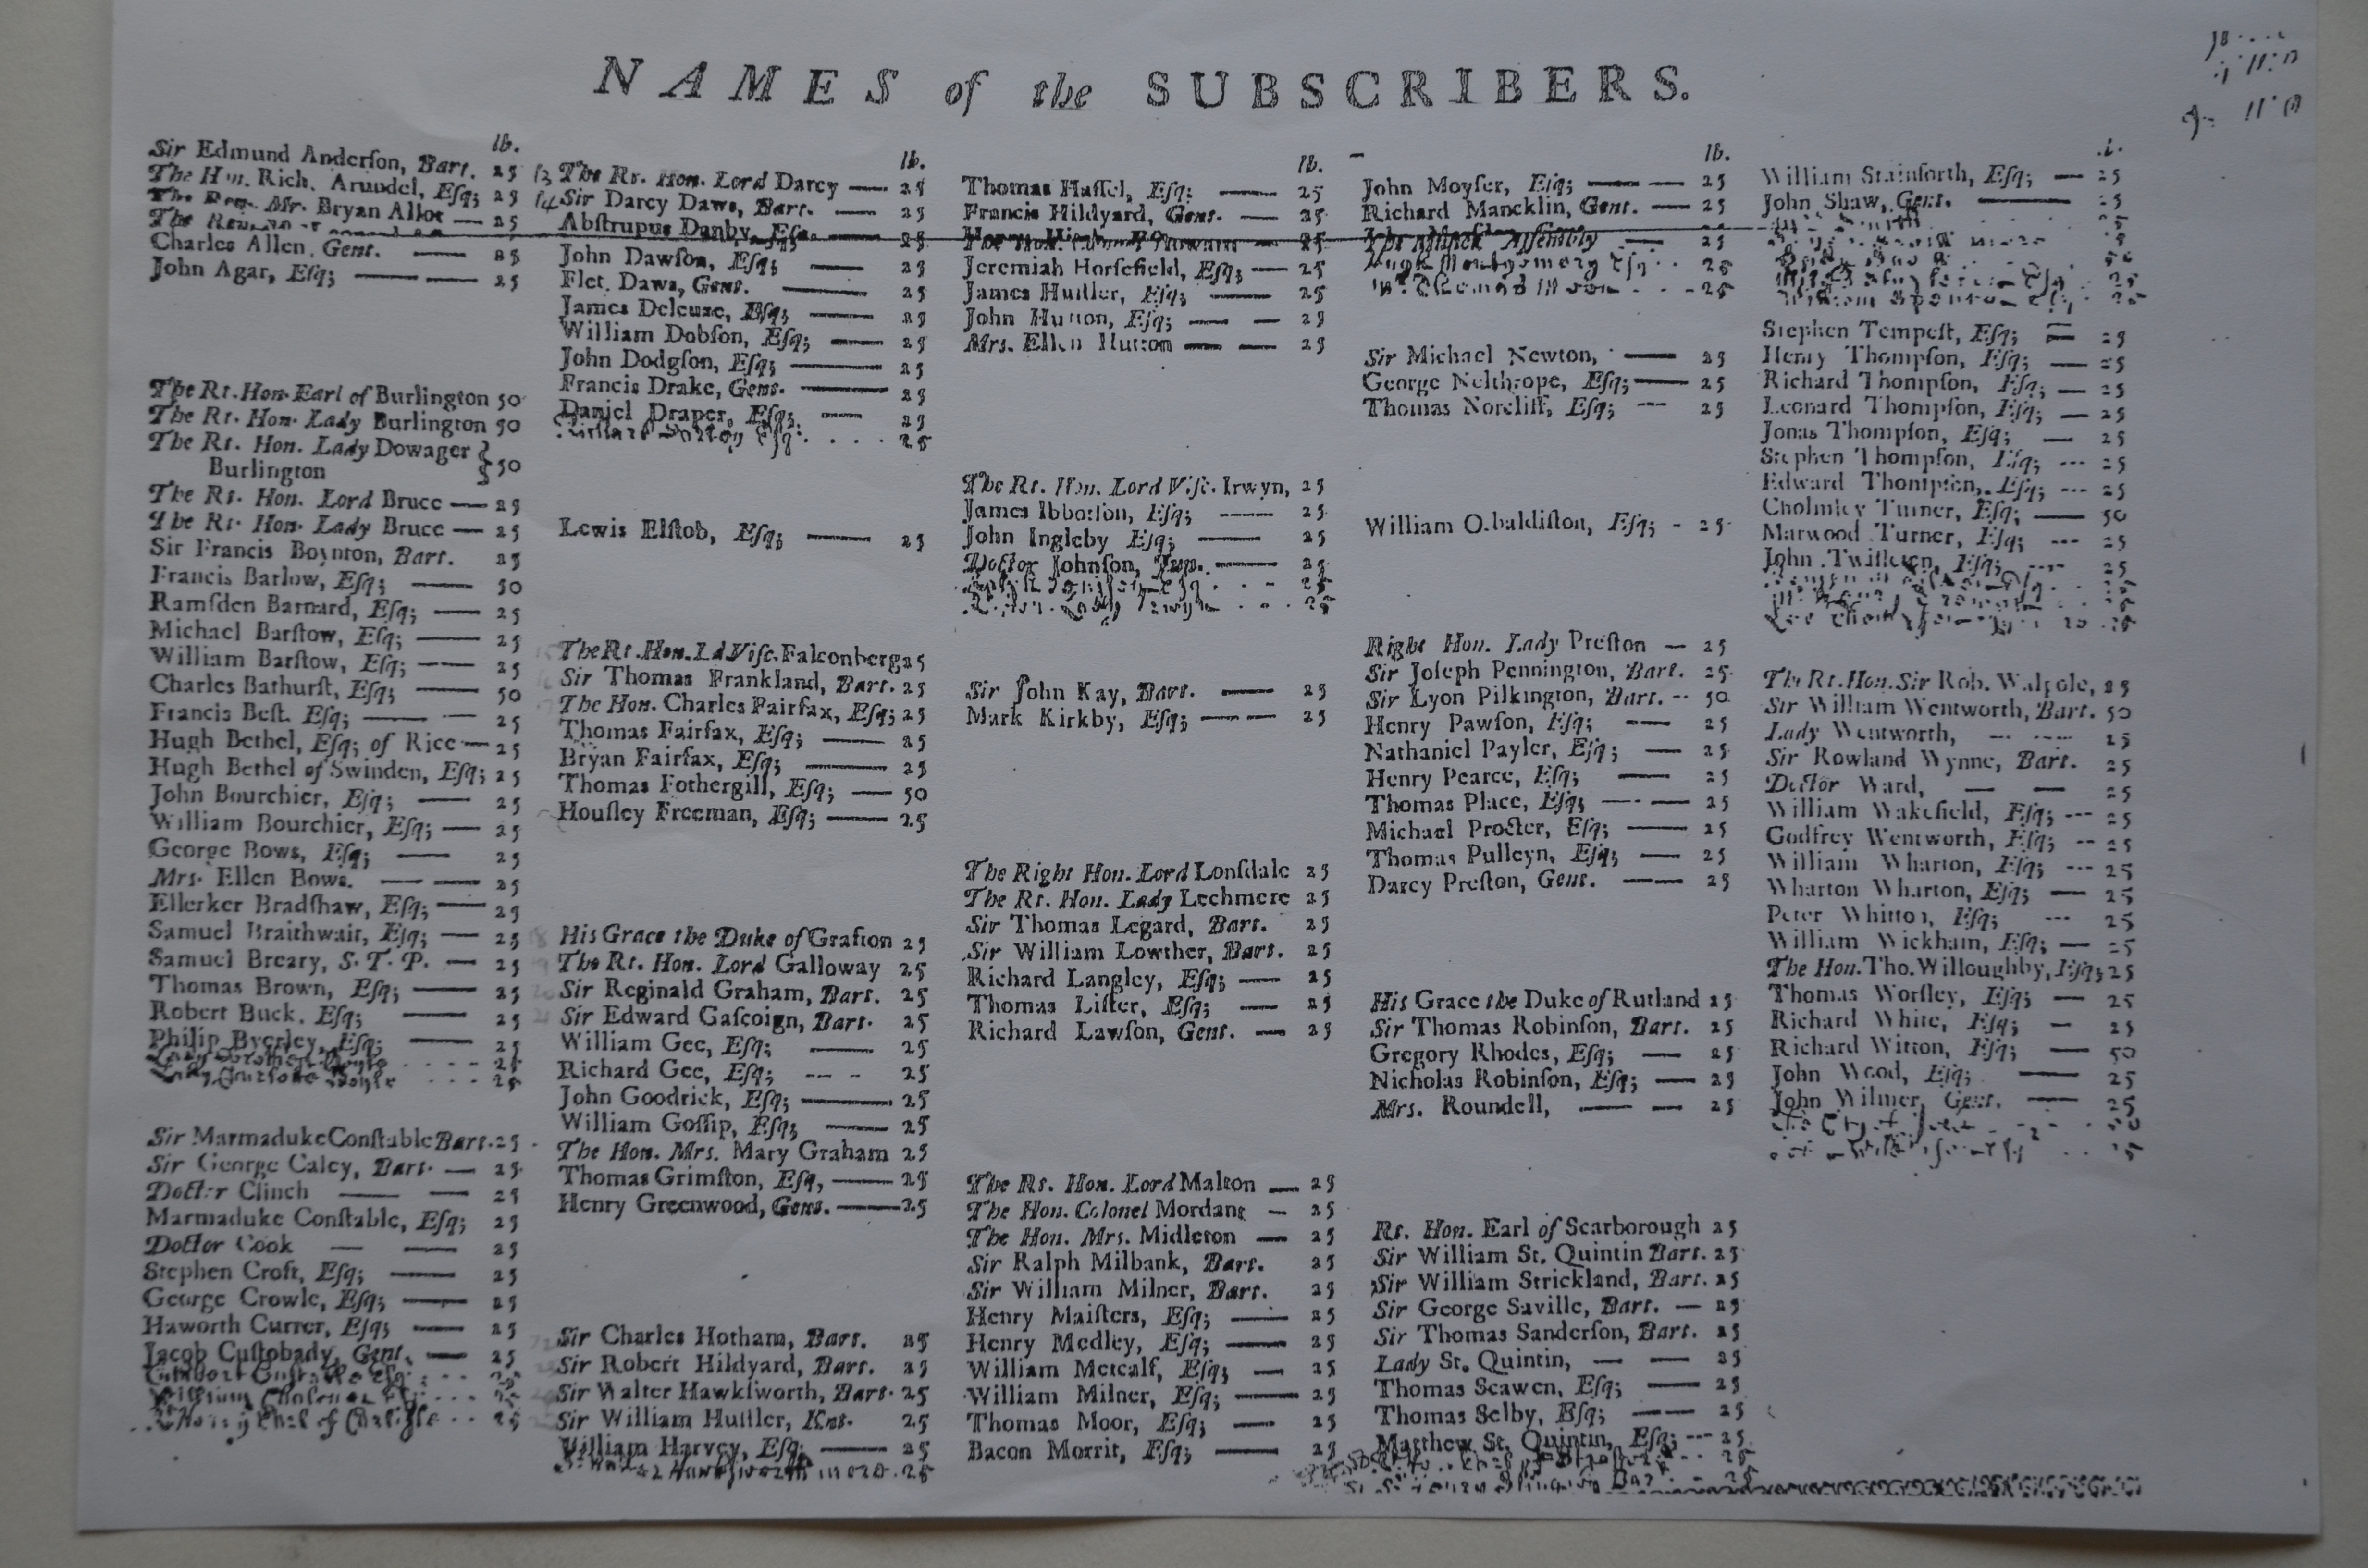 NAMES of the SUBSCRIBERS.
lb.
Sir Edmund Anderſon, Bart. 25
The Hon. Rich. Arundel, Eſq; 25
The Rev. Mr. Bryan Allot — 25
Charles Allen, Gent. — 25
John Agar, Eſq; — — 25
The Rt. Hon. Earl of Burlington 50
The Rt. Hon. Lady Burlington 50
The Rt. Hon. Lady Dowager
Burlington } 50
The Rt. Hon. Lord Bruce — 25
The Rt. Hon. Lady Bruce — 25
Sir Francis Boynton, Bart. 25
Francis Barlow, Eſq; — 50
Ramſden Barnard, Eſq; — 25
Michael Barſtow, Eſq; — 25
William Barſtow, Eſq; — 25
Charles Bathurſt, Eſq; — 50
Francis Beſt. Eſq; — — 25
Hugh Bethel, Eſq; of Rice — 25
Hugh Bethel of Swinden, Eſq; 25
John Bourchier, Eſq; — 25
William Bourchier, Eſq; — 25
George Bows, Eſq; — 25
Mrs. Ellen Bows. — — 25
Ellerker Bradſhaw, Eſq; — 25
Samuel Braithwait, Eſq; — 25
Samuel Breary, S. T. P. — 25
Thomas Brown, Eſq; — 25
Robert Buck. Eſq; — 25
Philip Byerley, Eſq; — 25
Lady Boyle . . . . 25
Lady Charlotte Boyle . . . 25
Sir Marmaduke Conſtable Bart. 25
Sir George Caley, Bart. — 25
Doctor Clinch — — 25
Marmaduke Conſtable, Eſq; 25
Doctor Cook — — 25
Stephen Croft, Eſq; — 25
George Crowle, Eſq; — 25
Haworth Currer, Eſq; — 25
Jacob Cuſtobady, Gent. — 25
Earl of Carlisle . . 25
lb.
13 The Rt. Hon. Lord Darcy — 25
14 Sir Darcy Daws, Bart. — 25
Abſtrupus Danby, Eſq. — 25
John Dawſon, Eſq; — 25
Flet. Daws, Gent. — 25
James Deleuze, Eſq; — 25
William Dobſon, Eſq; — 25
John Dodgſon, Eſq; — 25
Francis Drake, Gent. — 25
Daniel Draper, Eſq; — 25
Lewis Elſtob, Eſq; — 25
The Rt. Hon. Ld Viſc. Falconberg 25
Sir Thomas Frankland, Bart. 25
The Hon. Charles Fairfax, Eſq; 25
Thomas Fairfax, Eſq; — 25
Bryan Fairfax, Eſq; — 25
Thomas Fothergill, Eſq; — 50
Houſley Freeman, Eſq; — 25
His Grace the Duke of Grafton 25
The Rt. Hon. Lord Galloway 25
Sir Reginald Graham, Bart. 25
Sir Edward Gaſcoign, Bart. 25
William Gee, Eſq; — 25
Richard Gee, Eſq; -- - 25
John Goodrick, Eſq; — 25
William Goſſip, Eſq; — 25
The Hon. Mrs. Mary Graham 25
Thomas Grimſton, Eſq, — 25
Henry Greenwood, Gent. — 25
Sir Charles Hotham, Bart. 25
Sir Robert Hildyard, Bart. 25
Sir Walter Hawkſworth, Bart. 25
Sir William Huſtler, Knt. 25
William Harvey, Eſq; — 25
lb.
Thomas Haſſel, Eſq; — 25
Francis Hildyard, Gent. — 25
Jeremiah Horſefield, Eſq; — 25
James Huſtler, Eſq; — 25
John Hutton, Eſq; — — 25
Mrs. Ellen Hutton — — 25
The Rt. Hon. Lord Viſc. Irwyn, 25
James Ibbotſon, Eſq; — 25
John Ingleby Eſq; — 25
Doctor Johnſon, Jun. — 25
Sir John Kay, Bart. — 25
Mark Kirkby, Eſq; — — 25
The Right Hon. Lord Lonſdale 25
The Rt. Hon. Lady Lechmere 25
Sir Thomas Legard, Bart. 25
Sir William Lowther, Bart. 25
Richard Langley, Eſq; — 25
Thomas Liſter, Eſq; — 25
Richard Lawſon, Gent. — 25
The Rt. Hon. Lord Malton — 25
The Hon. Colonel Mordant — 25
The Hon. Mrs. Midleton — 25
Sir Ralph Milbank, Bart. 25
Sir William Milner, Bart. 25
Henry Maiſters, Eſq; — 25
Henry Medley, Eſq; — 25
William Metcalf, Eſq; — 25
William Milner, Eſq; — 25
Thomas Moor, Eſq; — 25
Bacon Morrit, Eſq; — 25
lb.
John Moyſer, Eſq; — — 25
Richard Mancklin, Gent. — 25
The Muſick Aſſembly — 25
Hugh Montgomery Esq . . 25
Mr. Thomas . . . 25
Sir Michael Newton, — 25
George Nelthrope, Eſq; — 25
Thomas Norcliff, Eſq; --- 25
William O.baldiſton, Eſq; - 25
Right Hon. Lady Preſton — 25
Sir Joſeph Pennington, Bart. 25
Sir Lyon Pilkington, Bart. -- 50
Henry Pawſon, Eſq; — 25
Nathaniel Payler, Eſq; — 25
Henry Pearce, Eſq; — 25
Thomas Place, Eſq; — — 25
Michael Procter, Eſq; — 25
Thomas Pulleyn, Eſq; — 25
Darcy Preſton, Gent. — — 25
His Grace the Duke of Rutland 25
Sir Thomas Robinſon, Bart. 25
Gregory Rhodes, Eſq; — 25
Nicholas Robinſon, Eſq; — 25
Mrs. Roundell, — — 25
Rt. Hon. Earl of Scarborough 25
Sir William St. Quintin Bart. 25
Sir William Strickland, Bart. 25
Sir George Saville, Bart. — 25
Sir Thomas Sanderſon, Bart. 25
Lady St. Quintin, — — 25
Thomas Scawen, Eſq; — 25
Thomas Selby, Eſq; — — 25
Matthew St. Quintin, Eſq; --- 25
William Stainforth, Eſq; — 25
John Shaw, Gent. — 25
Stephen Tempeſt, Eſq; — 25
Henry Thompſon, Eſq; — 25
Richard Thompſon, Eſq; — 25
Leonard Thompſon, Eſq; — 25
Jonas Thompſon, Eſq; — 25
Stephen Thompſon, Eſq; --- 25
Edward Thompſon, Eſq; --- 25
Cholmley Turner, Eſq; — 50
Marwood Turner, Eſq; --- 25
John Twiſleton, Eſq; --- 25
The Rt. Hon. Sir Rob. Walpole, 25
Sir William Wentworth, Bart. 50
Lady Wentworth, — --- 25
Sir Rowland Wynne, Bart. 25
Doctor Ward, — — 25
William Wakefield, Eſq; --- 25
Godfrey Wentworth, Eſq; -- 25
William Wharton, Eſq; --- 25
Wharton Wharton, Eſq; — 25
Peter Whitton, Eſq; --- 25
William Wickham, Eſq; — 25
The Hon. Tho. Willoughby, Eſq; 25
Thomas Worſley, Eſq; — 25
Richard White, Eſq; — 25
Richard Witton, Eſq; — 50
John Wood, Eſq; — 25
John Wilmer, Gent. — 25